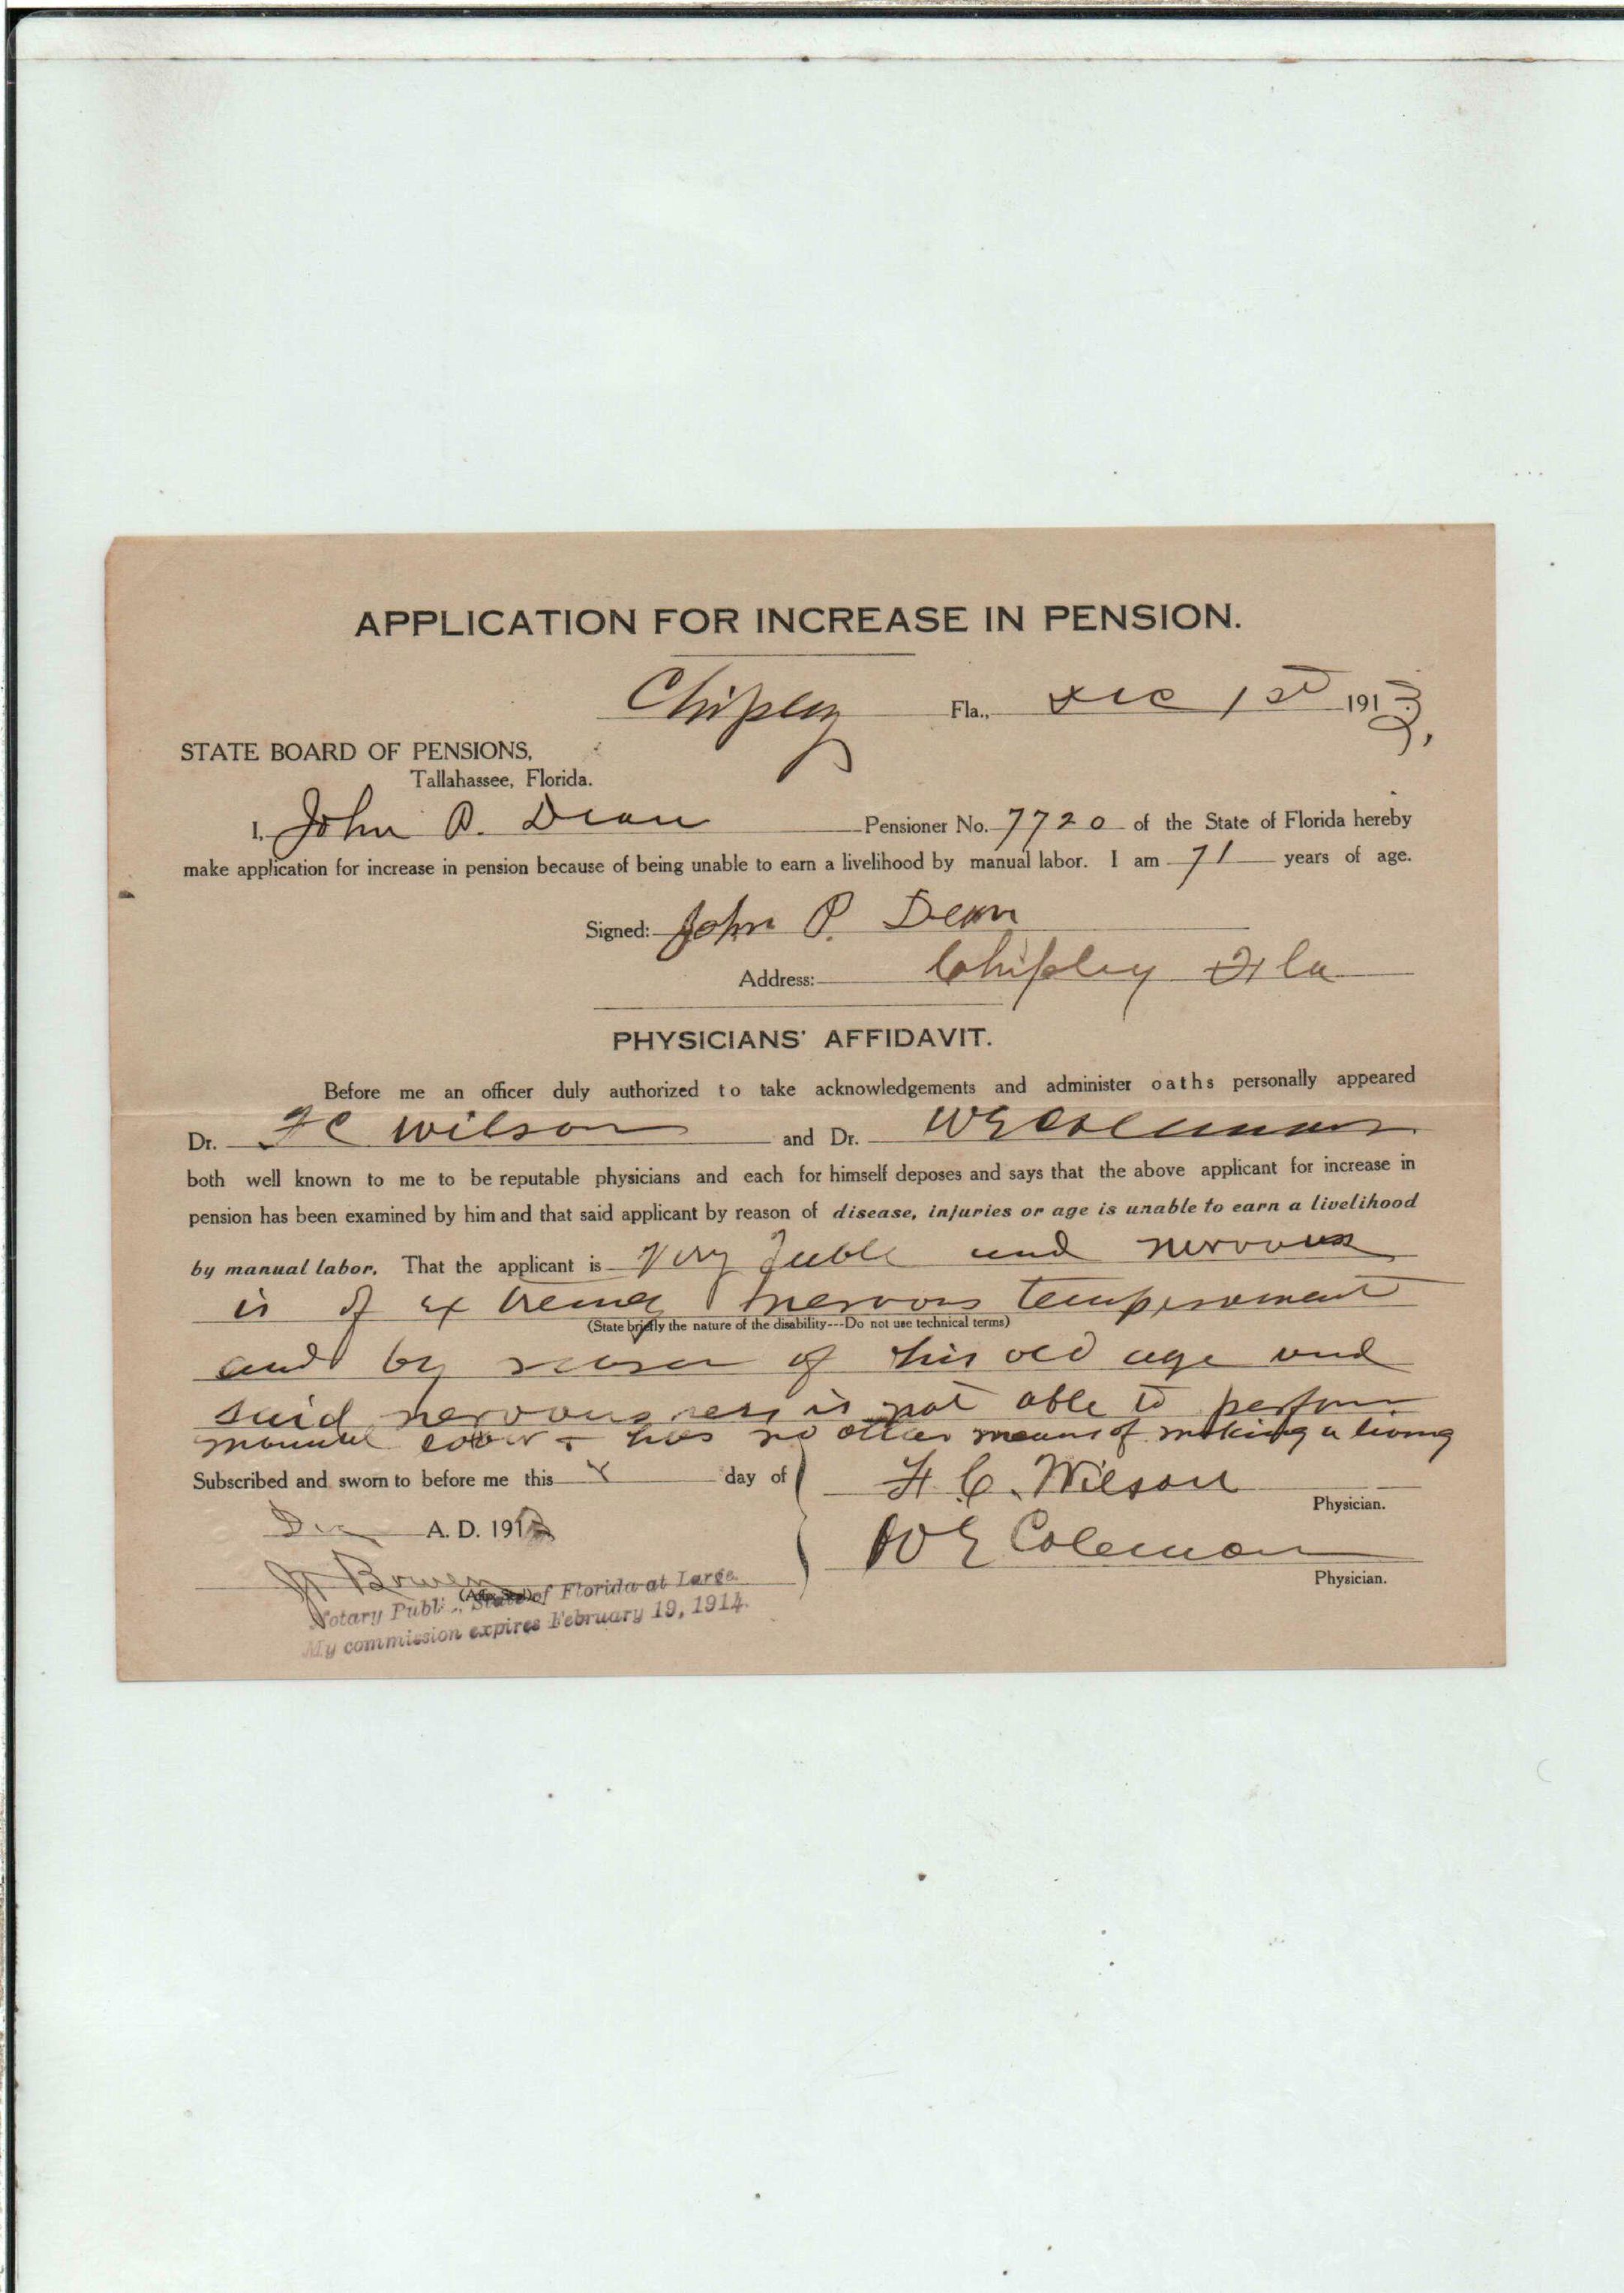 APPLICATION FOR INCREASE IN PENSION.
Chipley Fla., Dec 1st 1913,
STATE BOARD OF PENSIONS,
Tallahassee, Florida.
I, John P. Dean Pensioner No. 7720 of the State of Florida hereby
make application for increase in pension because of being unable to earn a livelihood by manual labor. I am 71 years of age.
Signed: John P. Dean
Address: Chipley Fla
PHYSICIANS' AFFIDAVIT.
Before me an officer duly authorized to take acknowledgements and administer oaths personally appeared
Dr. F C Wilson and Dr. W E Coleman
both well known to me to be reputable physicians and each for himself deposes and says that the above applicant for increase in
pension has been examined by him and that said applicant by reason of disease, injuries or age is unable to earn a livelihood
by manual labor. That the applicant is Very feeble and nervous
is of extremely nervous temperament
(State briefly the nature of the disability---Do not use technical terms)
and by reason of his old age and
said nervousness is not able to perform
manual labor + has no other means of making a living
Subscribed and sworn to before me this day of
Dec A. D. 191
F. C. Wilson
Physician.
W E Coleman
Physician.
Bowen
Notary Public, State of Florida at Large
My commission expires February 19, 1914.